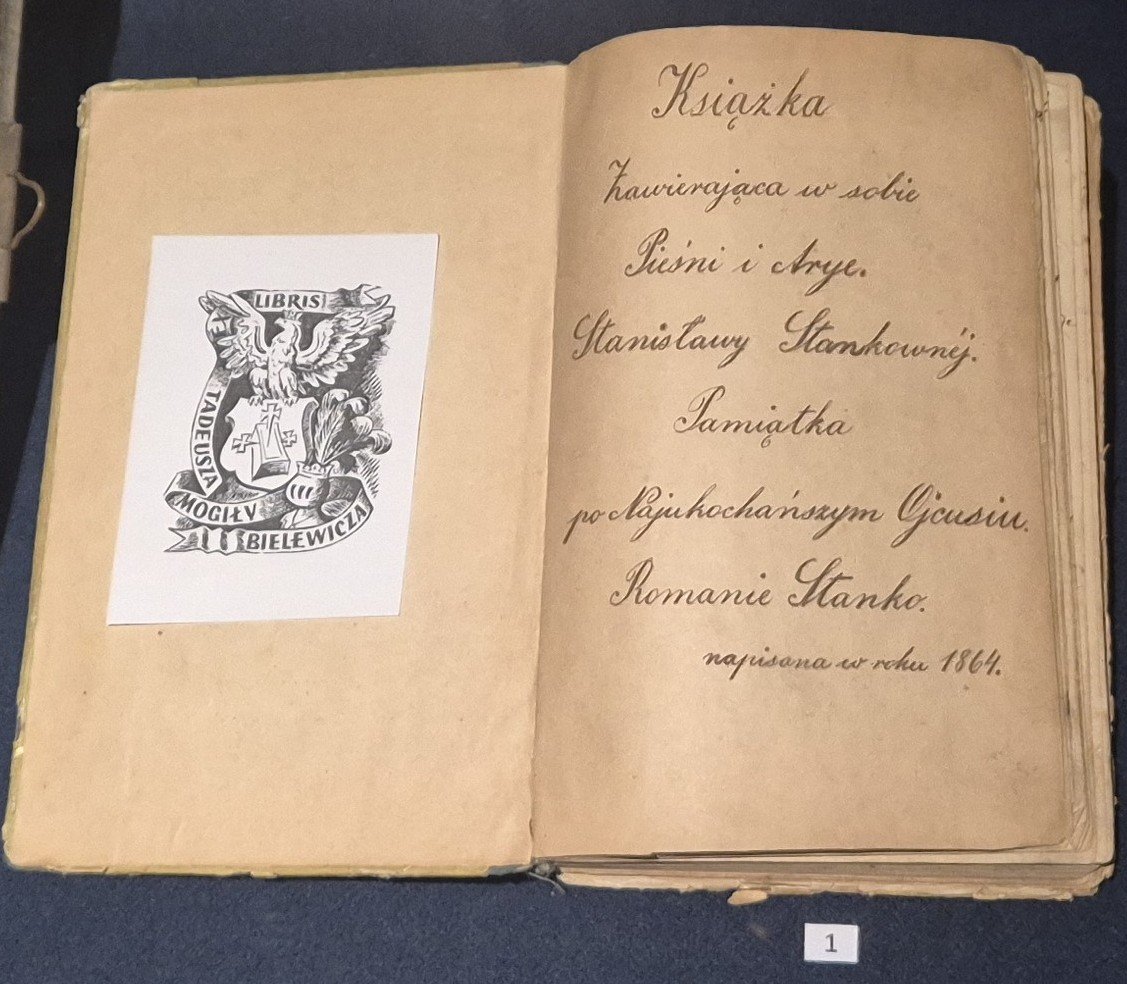 EX
LIBRIS
TADEUSZA
MOGIŁY
BIELEWICZA
Książka
Zawierająca w sobie
Pieśni i Arye.
Stanisławy Stankownéj.
Pamiątka
po Najukochańszym Ojcusiu.
Romanie Stanko.
napisana w roku 1864.
1